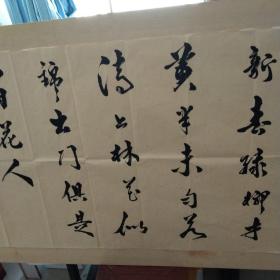 新春绿柳才
黄半未匀若
待上林花似
锦出门俱是
看花人